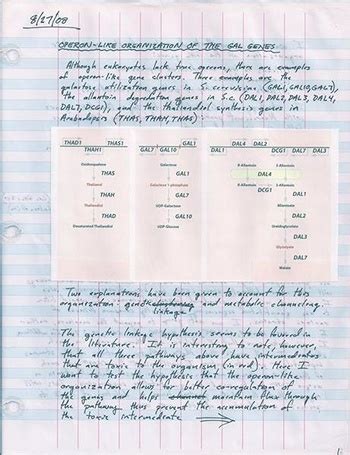 8/27/08
OPERON-LIKE ORGANIZATION OF THE GAL GENES
Although eukaryotes lack true operons, there are examples
of operon-like gene clusters. Three examples are the
galactose utilization genes in S. cerevisiae (GAL1, GAL10, GAL7),
the allantoin degradation genes in S.c. (DAL1, DAL2, DAL3, DAL4,
DAL7, DCG1), and the thalianol synthesis genes in
Arabadopsis (THAS, THAH, THAS):
THAD1 THAS1
THAH1
THAS
Thalianol
THAH
Thalian-diol
THAD
Desaturated Thalian-diol
GAL7 GAL10 GAL1
Galactose
GAL1
Galactose 1-phosphate
GAL7
UDP-Galactose
GAL10
UDP-Glucose
DAL4 DAL2
DAL1 DCG1 DAL7 DAL3
R-Allantoin S-Allantoin
DAL4
R-Allantoin S-Allantoin
DCG1 DAL1
Allantoate
DAL2
Ureidoglycolate
DAL3
Glyoxylate
DAL7
Malate
Two explanations have been given to account for this
organization: genetic linkage and metabolic channeling.
The genetic linkage hypothesis seems to be favored in
the literature. It is interesting to note, however,
that all three pathways above have intermediates
that are toxic to the organism (in red). Here I
want to test the hypothesis that the operon-like
organization allows for better co-regulation of
the genes and helps maintain flux through
the pathway thus prevent the accumulation of
the toxic intermediate